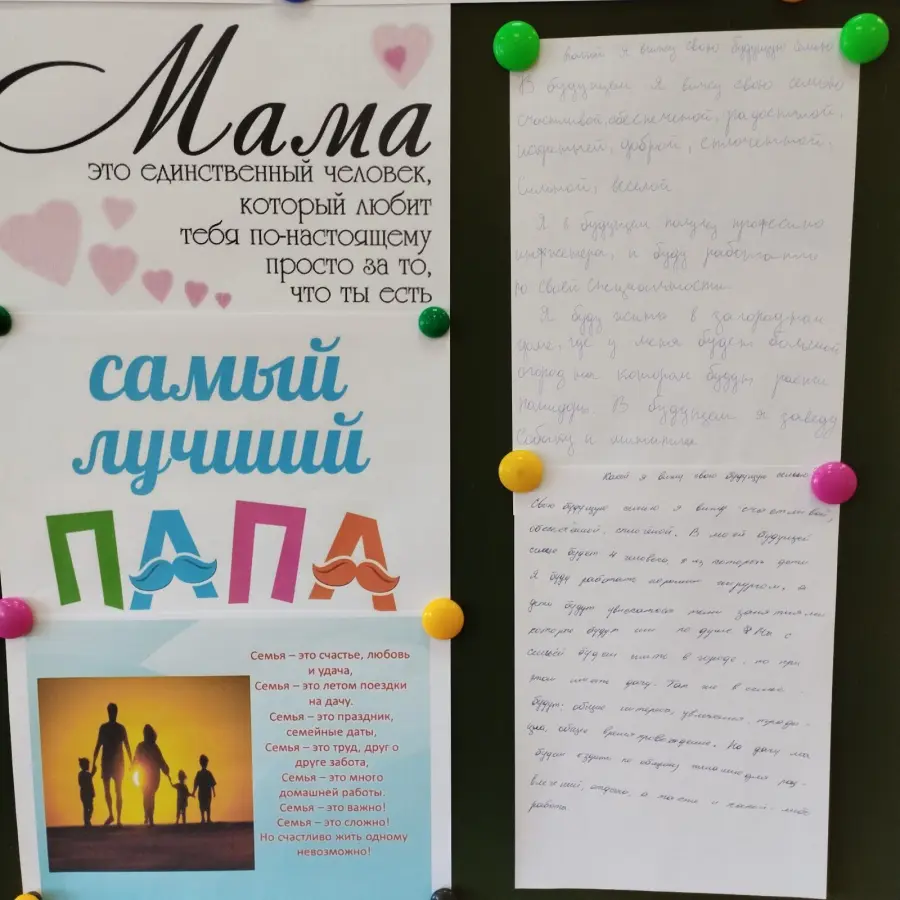 Мама
это единственный человек,
который любит
тебя по-настоящему
просто за то,
что ты есть
самый
лучший
ПАПА
Семья – это счастье, любовь
и удача,
Семья – это летом поездки
на дачу.
Семья – это праздник,
семейные даты,
Семья – это труд, друг о
друге забота,
Семья – это много
домашней работы.
Семья – это важно!
Семья – это сложно!
Но счастливо жить одному
невозможно!
Какой я вижу свою будущую семью
В будущем я вижу свою семью
счастливой, обеспеченой, радостной,
доброй, сплоченной,
сильной, веселой
Я в будущем получу професию
инженера, и буду работать
по своей специальности
Я буду жить в загородном
доме, где у меня будет большой
огород на котором будут расти
помидоры. В будущем я заведу
собаку и
Какой я вижу свою будущую семью
Свою будущую семью я вижу счастливой,
В моей будущей
семье будет 4 человека, 2 из которых дети
Я буду работать хирургом, а
дети будут увлекаться теми занятиями
которые будут им по душе Мы с
семьёй будем жить в городе, но при
этом иметь дачу. Так же в семье
будут: общие интересы, увлечения,
общее времяпровождение. На дачу мы
будем ездить по
отдыха, а так же и какой-либо
работы